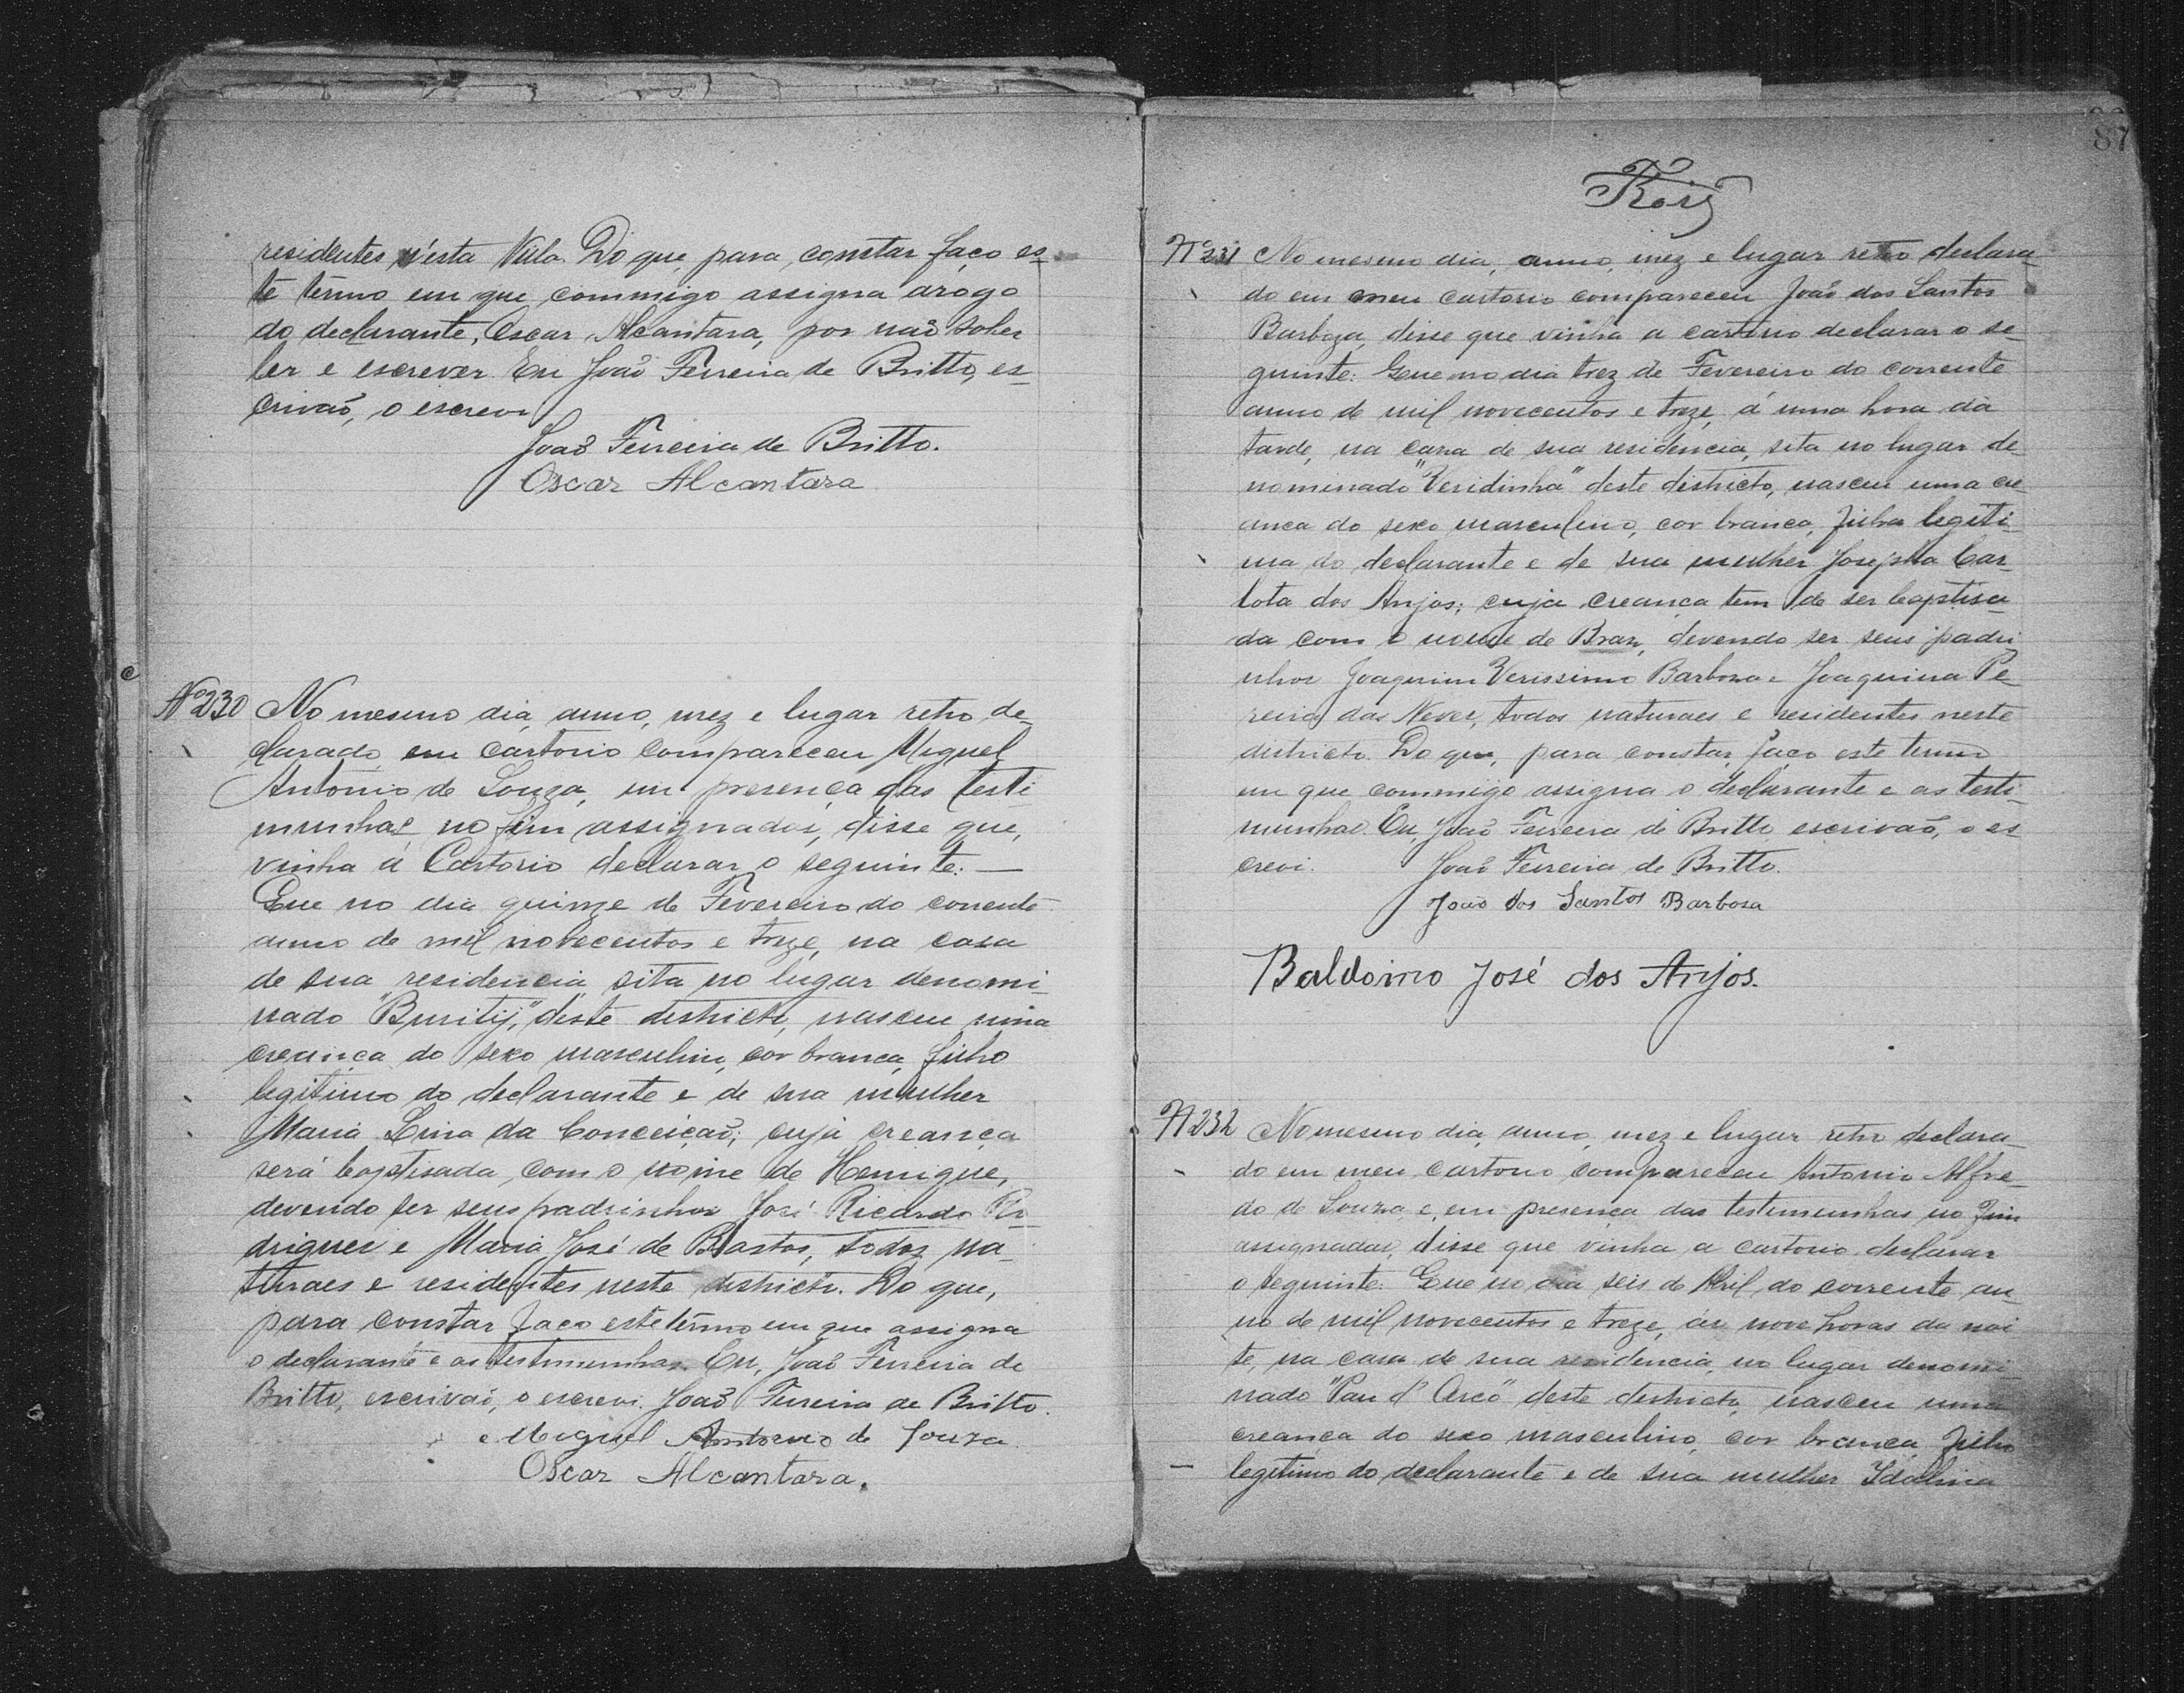 residentes n'esta Villa. Do que, para constar faço es-
te termo em que commigo assigna arogo
do declarante, Oscar Alcantara, por não saber
ler e escrever. Eu João Ferreira de Britto, es-
crivão, o escrevi
João Ferreira de Britto.
Oscar Alcantara
Nº 230 No mesmo dia, anno, mez e lugar retro de-
clarado, em cartorio compareceu Miguel
Antonio de Souza, em presença das teste
munhas no fim assignados, disse que,
vinha a Cartorio declarar o seguinte: —
Que no dia quinze de Fevereiro do corrente
anno de mil novecentos e treze, na casa
de sua residencia sita no lugar denomi-
nado "Burity", deste districto, nasceu uma
creança do sexo masculino, cor branca, filho
legitimo do declarante e de sua mulher
Maria Lina da Conceição; cuja creança
será baptisada com o nome de Henrique,
devendo ser seus padrinhos José Ricardo Ro-
drigues e Maria José de Bastos, todos na-
turaes e residentes neste districto. Do que,
para constar faço este termo em que assigna
o declarante e as testemunhas. Eu, João Ferreira de
Britto, escrivão, o escrevi. João Ferreira de Britto.
Miguel Antonio de Souza
Oscar Alcantara.
87
Nº 231 No mesmo dia, anno, mez e lugar retro declara-
do em meu cartorio compareceu João dos Santos
Barboza, disse que vinha a cartorio declarar o se-
guinte: Que no dia trez de Fevereiro do corrente
anno de mil novecentos e treze, á uma hora da
tarde, na casa de sua residencia, sita no lugar de-
nominado "Veridinha" deste districto, nasceu uma cre-
anca do sexo masculino, cor branca, filha legiti-
ma do declarante e de sua mulher Josepha Car-
lota dos Anjos; cuja creança tem de ser baptisa-
da com o nome de Braz, devendo ser seus padri-
nhos Joaquim Verissimo Barboza e Joaquina Pe-
reira das Neves, todos naturaes e residentes neste
districto. Do que, para constar, faço este termo
em que commigo assigna o declarante e as teste-
munhas. Eu, João Ferreira de Britto escrivão, o es-
crevi. João Ferreira de Britto.
João dos Santos Barbosa
Baldoino José dos Anjos.
N 232 No mesmo dia, anno, mez e lugar retro declara-
do em meu cartorio compareceu Antonio Alfre-
do de Souza e, em presença das testemunhas no fim
assignadas, disse que vinha a cartorio declarar
o seguinte: Que no dia seis de Abril do corrente an-
no de mil novecentos e treze, ás nove horas da noi-
te, na casa de sua residencia, no lugar denomi-
nado "Pau d'Arco" deste districto, nasceu uma
creança do sexo masculino, cor branca, filho
legitimo do declarante e de sua mulher Idalina